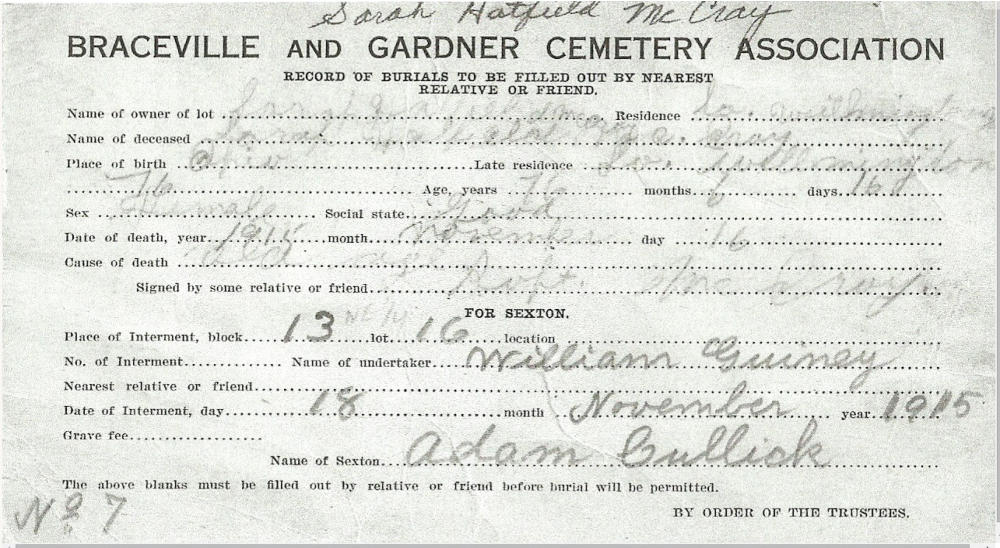 Sarah Hatfield Mc Cray
BRACEVILLE AND GARDNER CEMETERY ASSOCIATION
RECORD OF BURIALS TO BE FILLED OUT BY NEAREST
RELATIVE OR FRIEND.
Name of owner of lot Residence So. Wilmington
Name of deceased Sarah Hatfield Mc Cray
Place of birth Ohio Late residence So. Willmington
76 Age, years 76 months 6 days 16
Sex Female Social state Good
Date of death, year 1915 month November day 16
Cause of death old age
Signed by some relative or friend Robt. Mc Cray
FOR SEXTON.
Place of Interment, block 13 NE 1/4 lot 16 location
No. of Interment Name of undertaker William Guiney
Nearest relative or friend
Date of Interment, day 18 month November year 1915
Grave fee
Name of Sexton Adam Cullick
The above blanks must be filled out by relative or friend before burial will be permitted.
No 7
BY ORDER OF THE TRUSTEES.